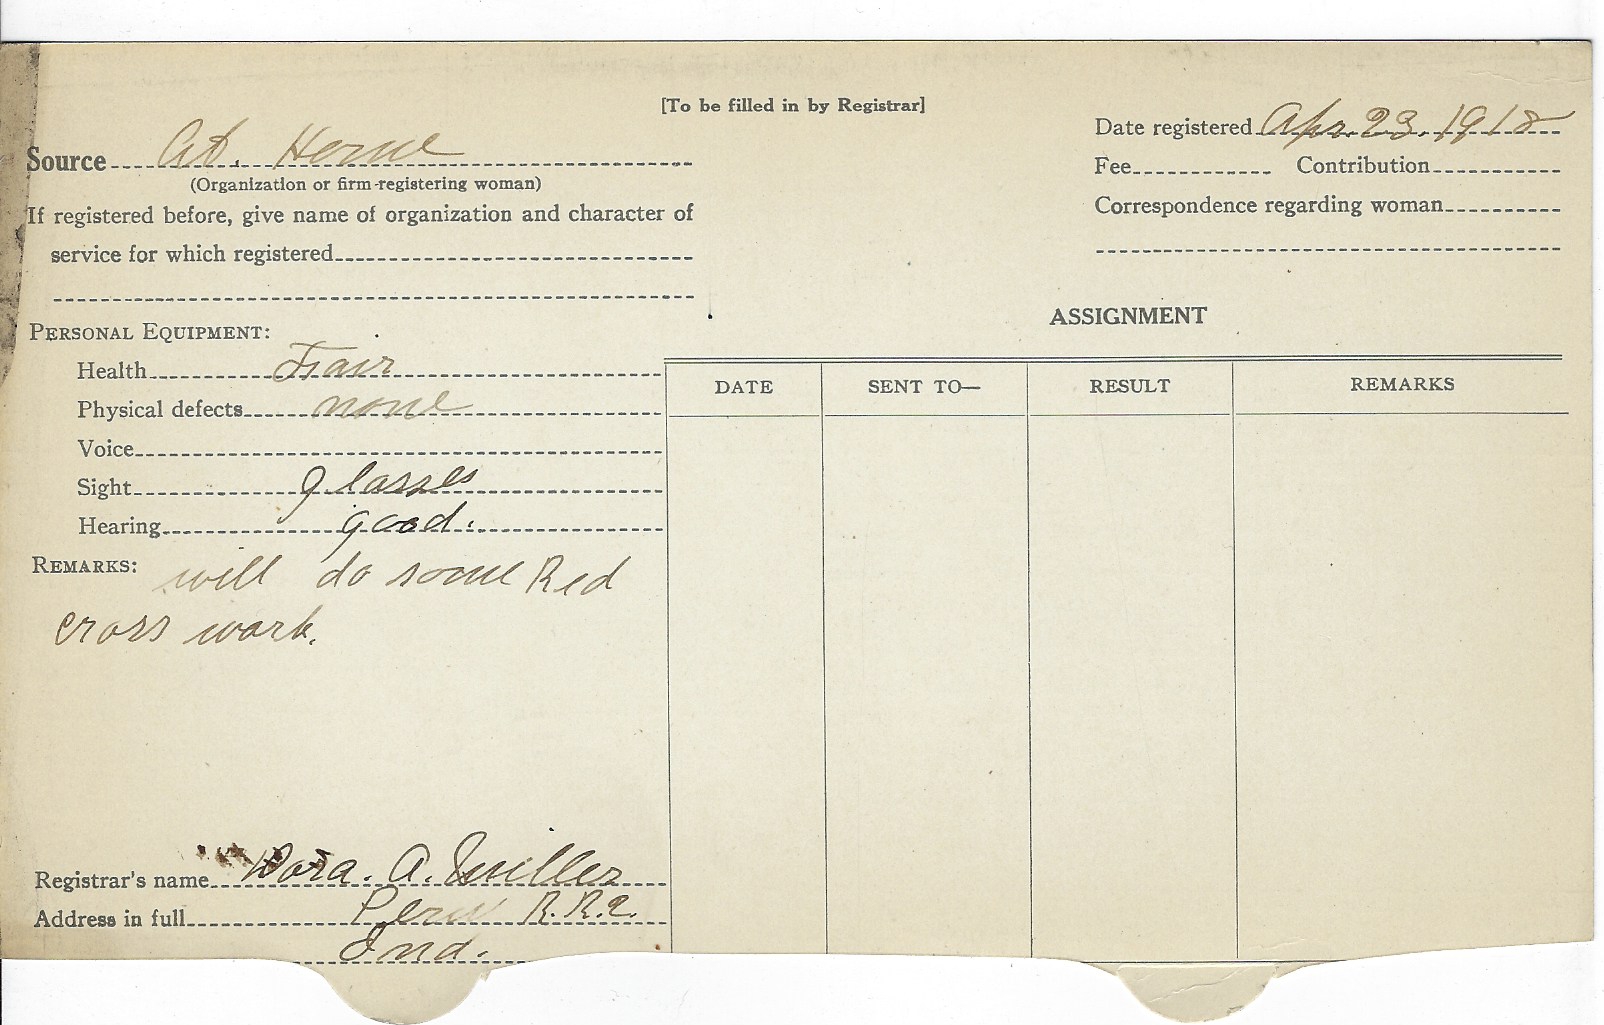 [To be filled in by Registrar]
Source At. Home
(Organization or firm registering woman)
If registered before, give name of organization and character of
service for which registered
Date registered Apr. 23. 1918
Fee Contribution
Correspondence regarding woman
PERSONAL EQUIPMENT:
Health Fair
Physical defects none
Voice
Sight glasses
Hearing good.
REMARKS: will do some Red
cross work.
Registrar's name Dora. A. Miller
Address in full Peru R.R.2.
Ind.
ASSIGNMENT
DATE SENT TO— RESULT REMARKS